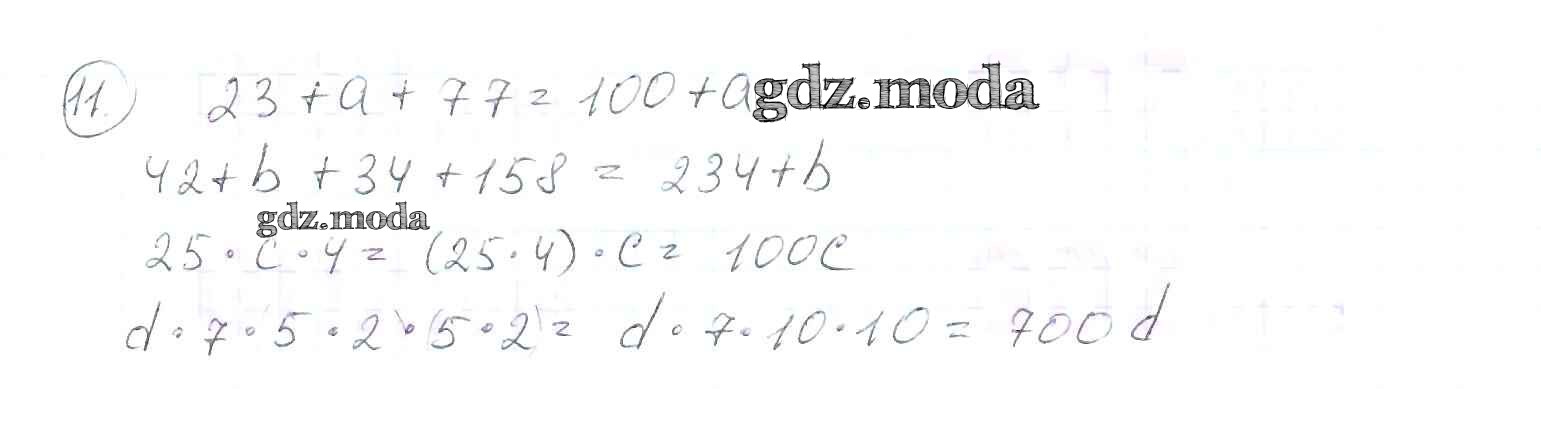 11. 23 + a + 77 = 100 + a gdz.moda
42 + b + 34 + 158 = 234 + b
gdz.moda
25 · c · 4 = (25 · 4) · c = 100c
d · 7 · 5 · 2 · (5 · 2) = d · 7 · 10 · 10 = 700d